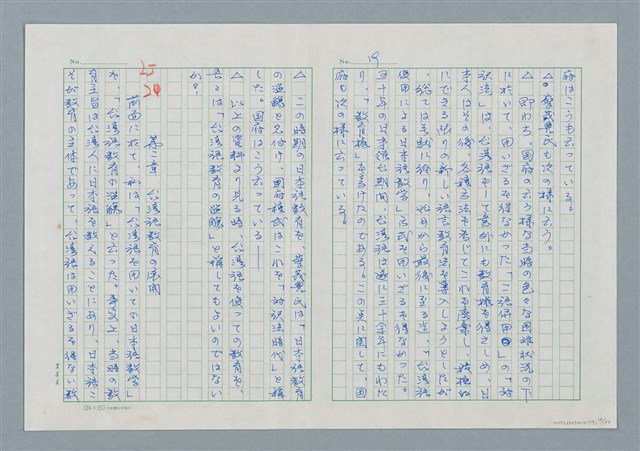 No.
19
府はこうも云っている。
△ 蔡茂豊氏も次の様に云う。
△ 即わち、国府の云う様な当時の色々な困難状況の下
に於いて、用いざるを得なかった「三語併用」の「対
訳法」は、台湾語をして意外にも教育権を得さしめ、日
本人はその後、各種方法を考じてこれを廃棄し、積極的
にできる限りの新しい語言教育法を導入しようとしたが
、総ては失敗に終り、始めから最後に至る迄、「台湾語
併用による日本語教学」方式を用いざるを得なかった。
五十年の日本領台期間、台湾語は遂に三十余年にもわた
り、「教育権」を享けたのである。この点に関して、国
府も次の様に云っている。
No.
△ この時期の日本語教育を、蔡茂豊氏は「日本語教育
の と名付け、国府種武はこれを「対訳法時代」と称
した。国府はこう云っている――
△ 以上の資料より見る時、台湾語を使っての教育を、
吾々は、「台湾語教育の 」と称してもよいのではない
か?
25
24
第二章 台湾語教育の展開
前面に於て、私は「台湾語を用いての日本語教学」
を、「台湾語教育の 」と云った。事実上、当時の教
育主旨は台湾人に日本語を教えることにあり、日本語こ
そが教育の主体であって、台湾語は用いざるを得ない教
(24×25)